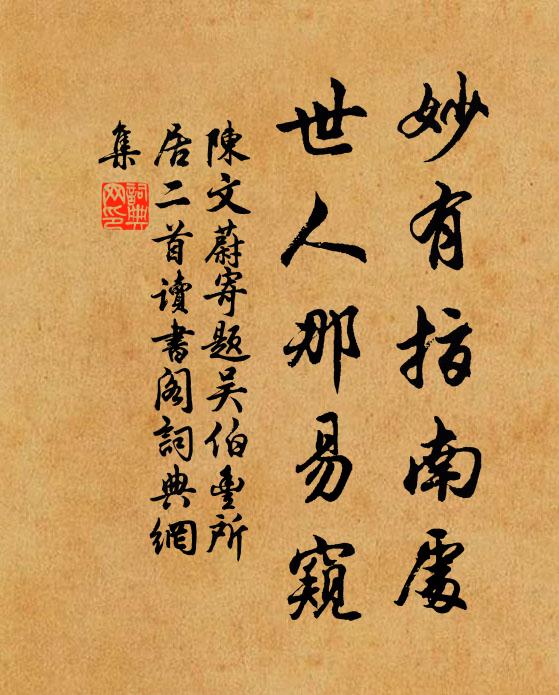 妙有指南處
世人那易窺
陳文蔚寄題吴伯豐所
居二首讀書閣詞典網
集
詞典網印